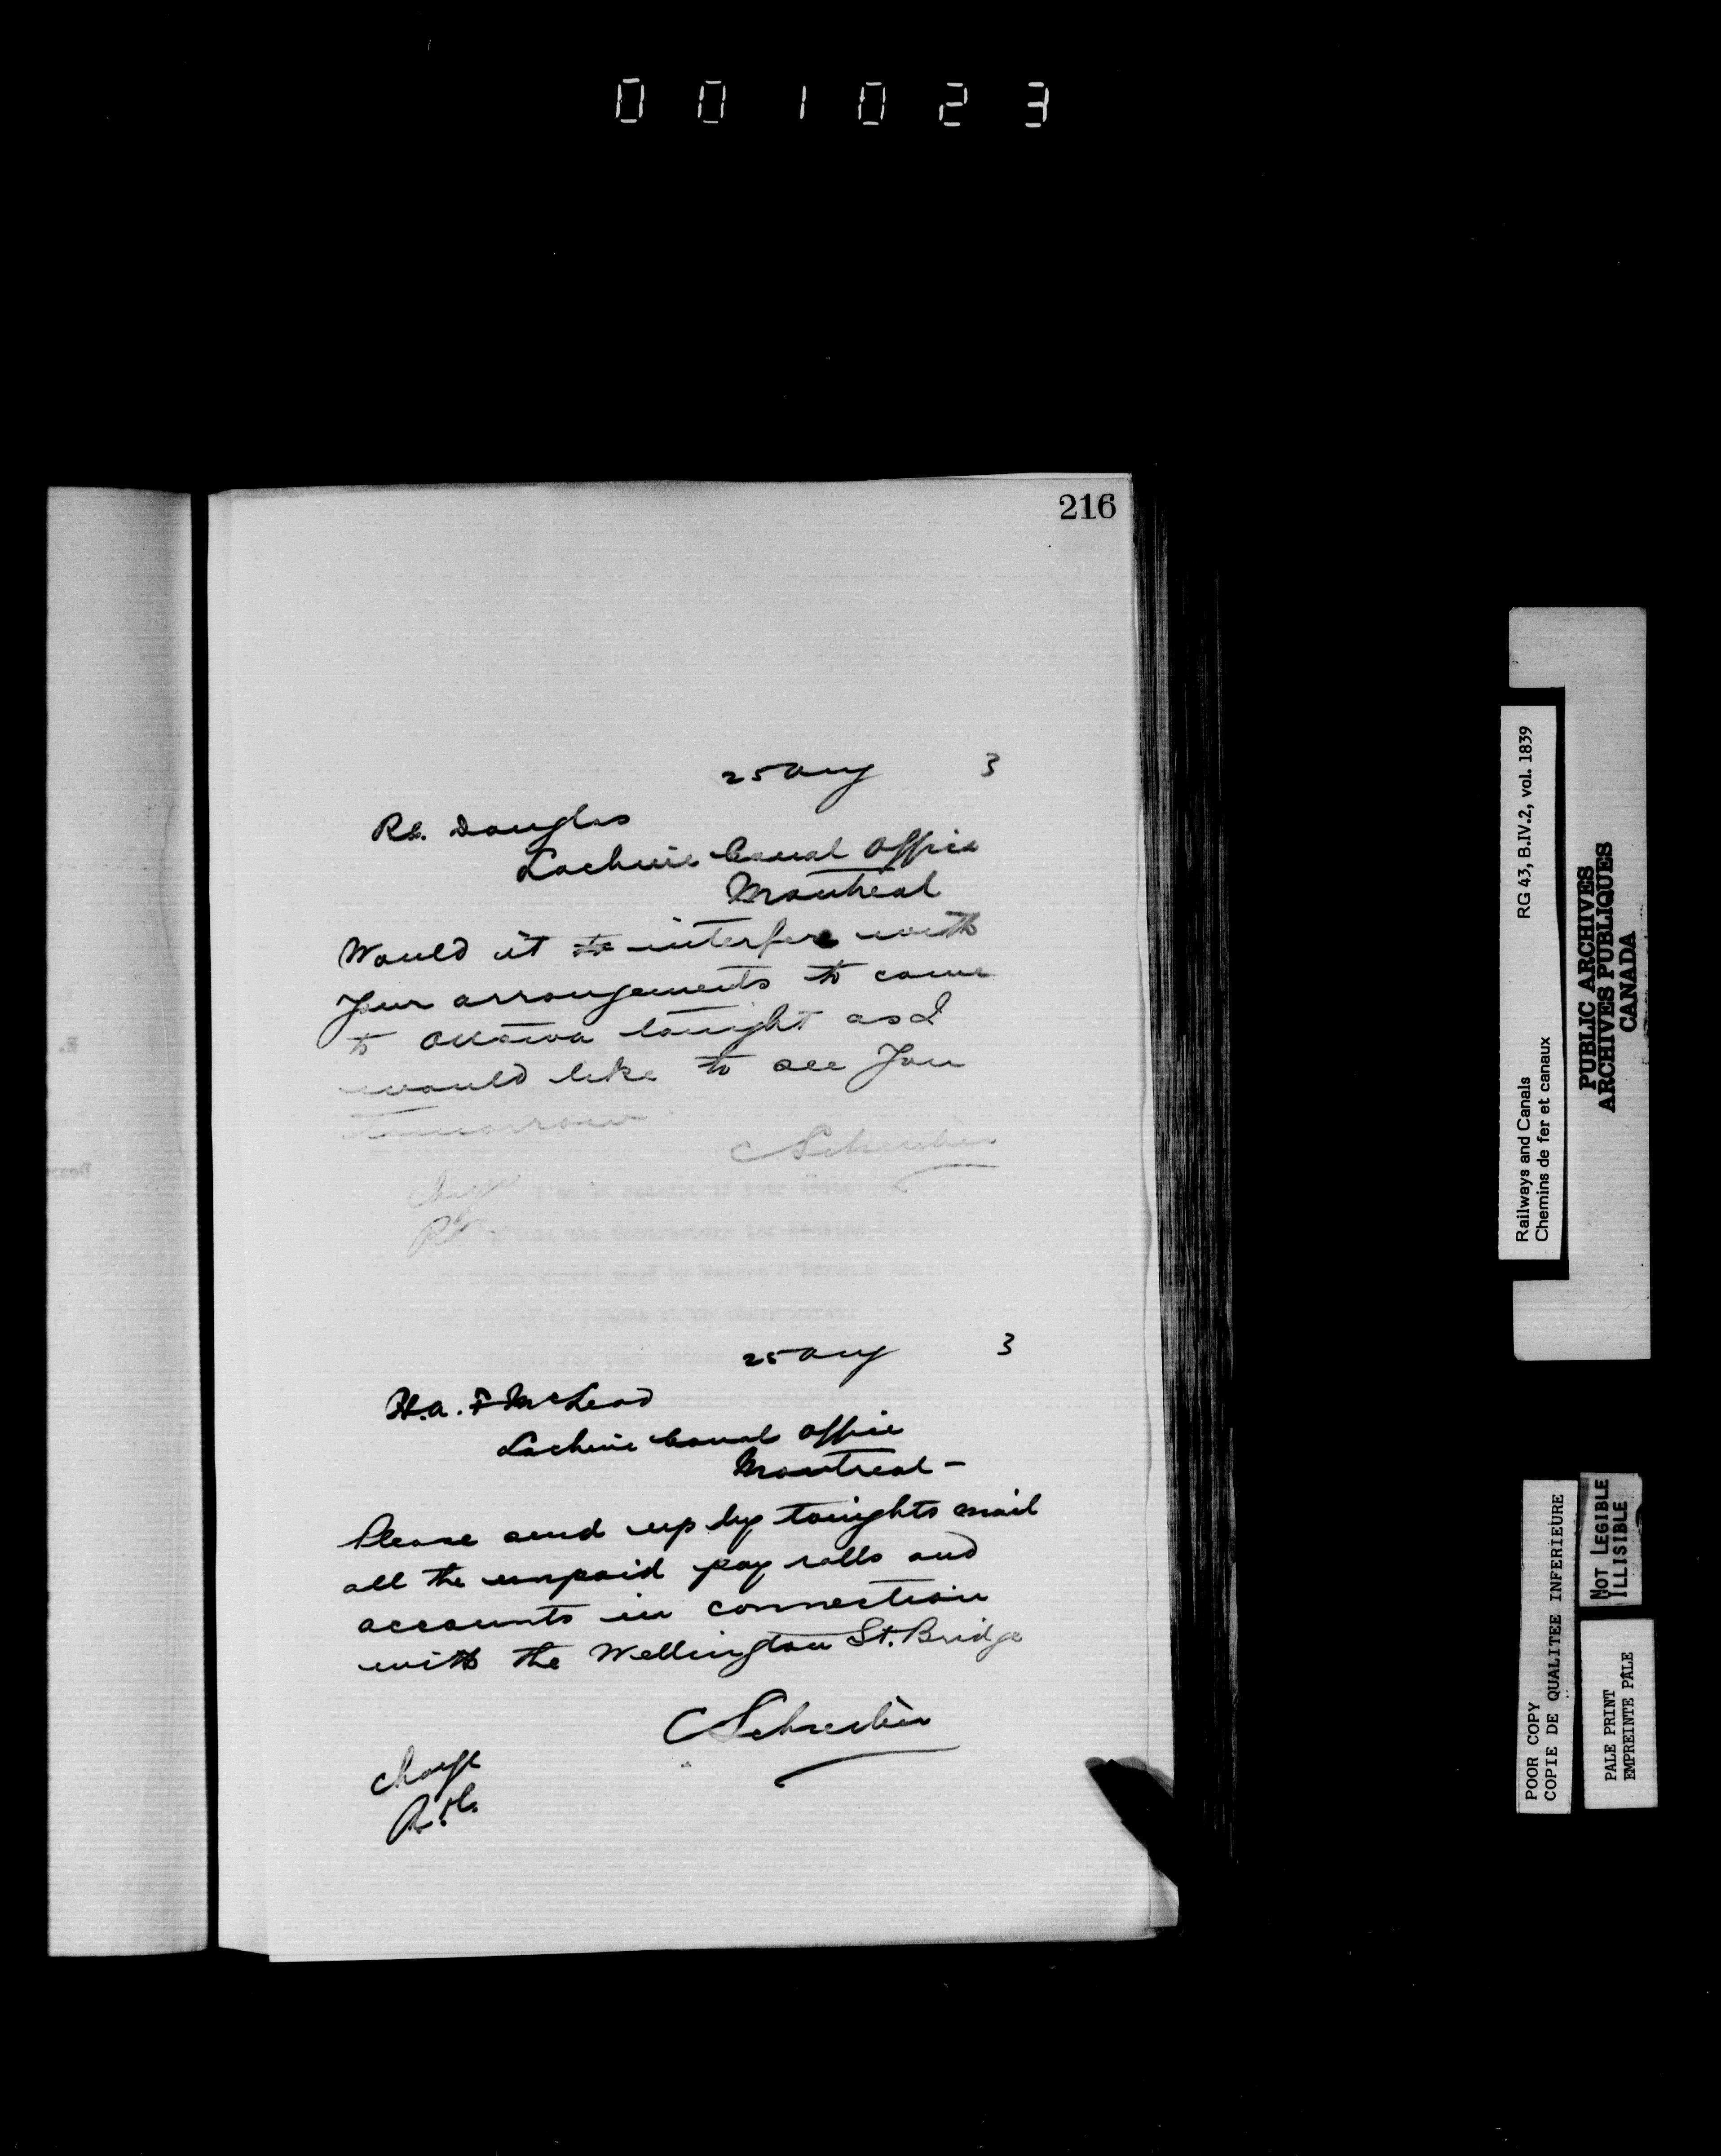 001023
216
25 Aug 3
R.C. Douglas
Lachine Canal Office
Montreal
Would it to interfere with
your arrangements to come
to Ottawa tonight as I
would like to see you
tomorrow
C Schreiber
Charge
25 Aug 3
H.A. F McLeod
Lachine Canal Office
Montreal -
Please send up by tonights mail
all the unpaid pay rolls and
accounts in connection
with the Wellington St. Bridge
C Schreiber
Charge
R.&C.
Railways and Canals RG 43, B.IV.2, vol. 1839
Chemins de fer et canaux
PUBLIC ARCHIVES
ARCHIVES PUBLIQUES
CANADA
POOR COPY
COPIE DE QUALITEE INFERIEURE
NOT LEGIBLE
ILLISIBLE
PALE PRINT
EMPREINTE PÂLE